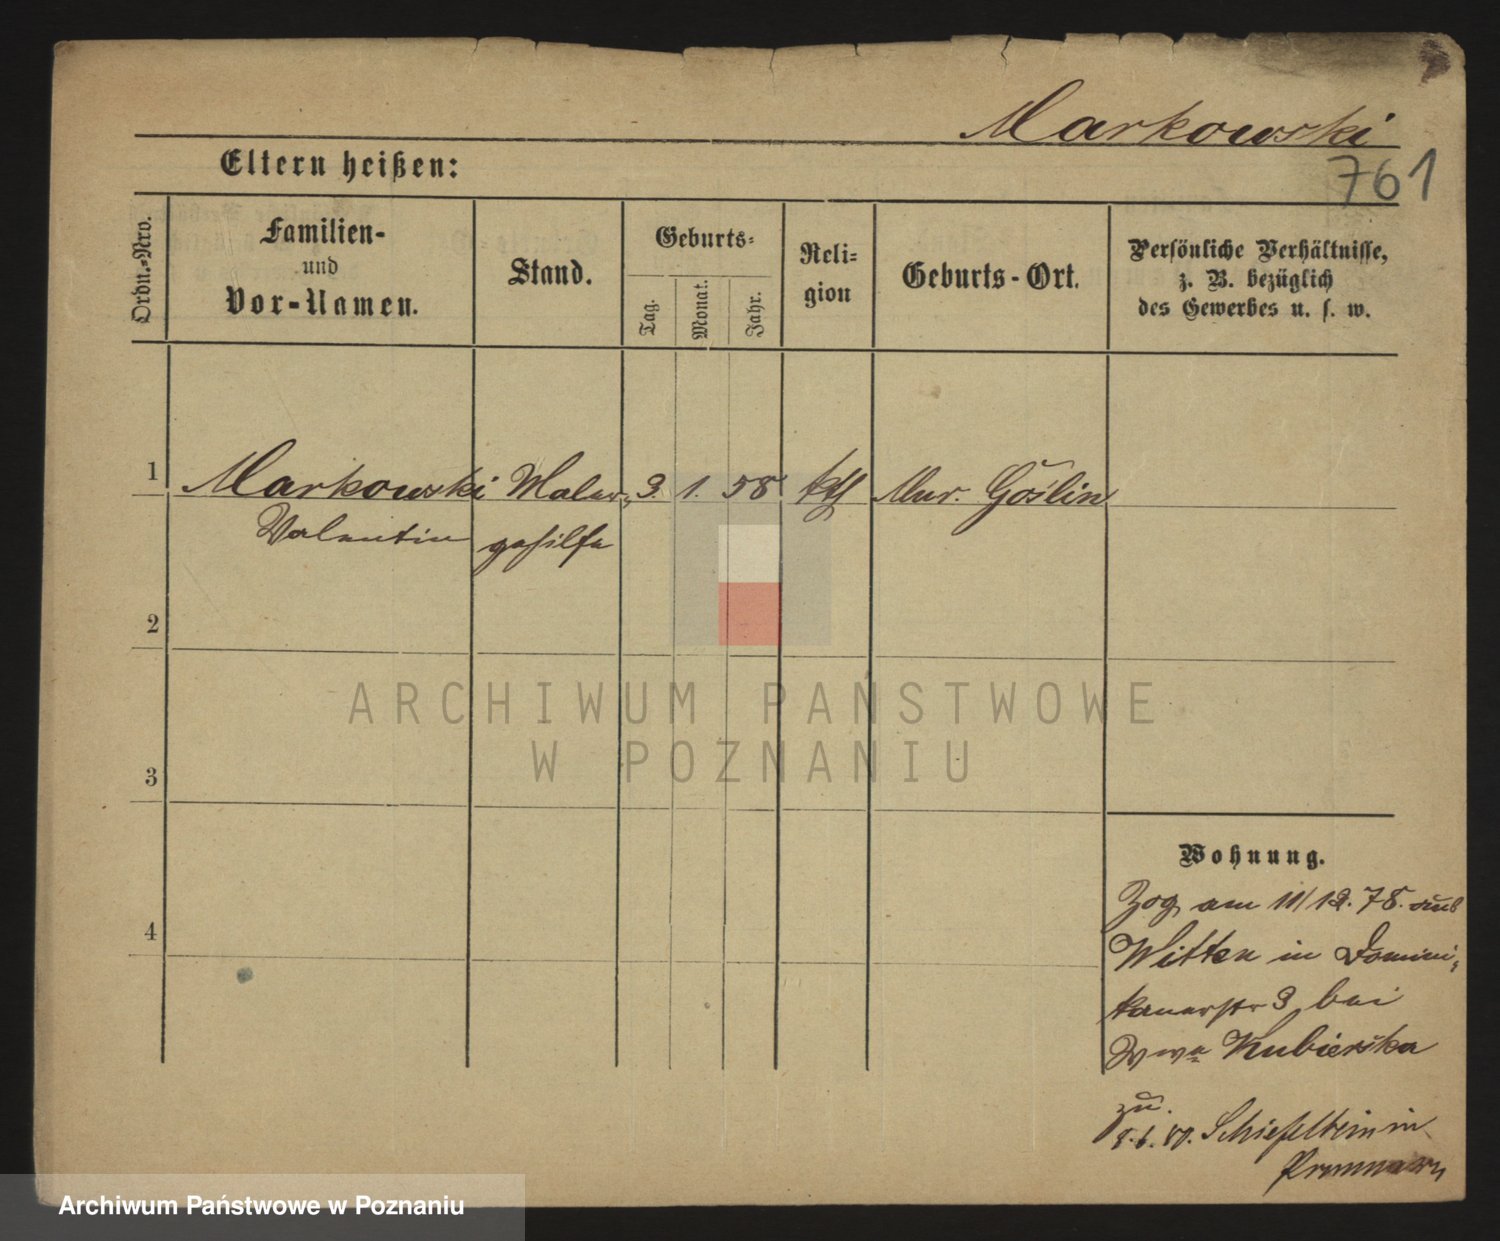 Markowski
761
Eltern heißen:
Ordn.-Nro.
Familien-
und
Vor-Namen.
Stand.
Geburts-
Tag.
Monat.
Jahr.
Reli-
gion
Geburts-Ort.
Persönliche Verhältnisse,
z. B. bezüglich
des Gewerbes u. s. w.
1 Markowski Maler- 3. 1. 58 kth Mur. Goślin
Valentin gehilfe
2
3
4
Wohnung.
Zog am 11/12. 78. aus
Witten in Domini-
kanerstr 3 bei
Wwe Kubierska
8.6.80. Schiefelbein in
Pommern
ARCHIWUM PAŃSTWOWE
W POZNANIU
Archiwum Państwowe w Poznaniu